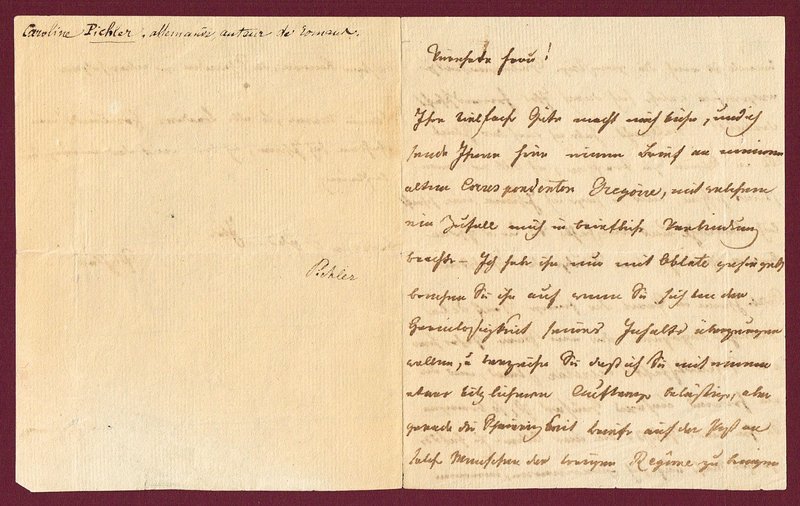 Caroline Pichler, allemande, auteur de romans.
Pichler
Verehrte Frau!
Ihre vielfache Güte macht mich kühn, und ich
sende Ihnen hier einen Brief an meinen
alten Correspondenten Gregoire, mit welchem
ein Zufall mich in briefliche Verbindung
brachte – Ich habe ihn nur mit Oblate gesiegelt
Sie ihn auf wenn Sie sich von der
seines Inhalts überzeugen
wollen, u verzeihen Sie daß ich Sie mit einem
etwas kitzlichern Auftrage belästige, aber
gerade die Schwierigkeit Briefe auf der Post an
solche Menschen der Regime zu bringen